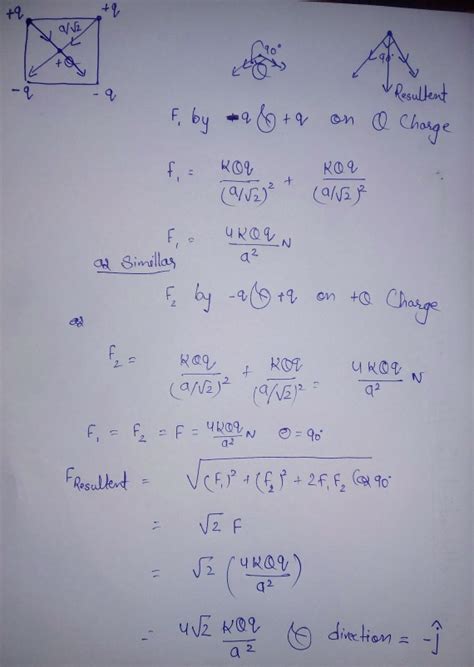 +q +q
a/√2
+Q
-q -q
90°
90°
Resultent
F₁ by -q & +q on Q Charge
F₁ = KQq/(a/√2)² + KQq/(a/√2)²
F₁ = 4KQq/a² N
or Simillar
F₂ by -q & +q on +Q Charge
or
F₂ = KQq/(a/√2)² + KQq/(a/√2)² = 4KQq/a² N
F₁ = F₂ = F = 4KQq/a² N θ = 90°
F Resultent = √((F₁)² + (F₂)² + 2F₁F₂ Cos 90°
= √2 F
= √2 (4KQq/a²)
= 4√2 KQq/a² & direction = -ĵ